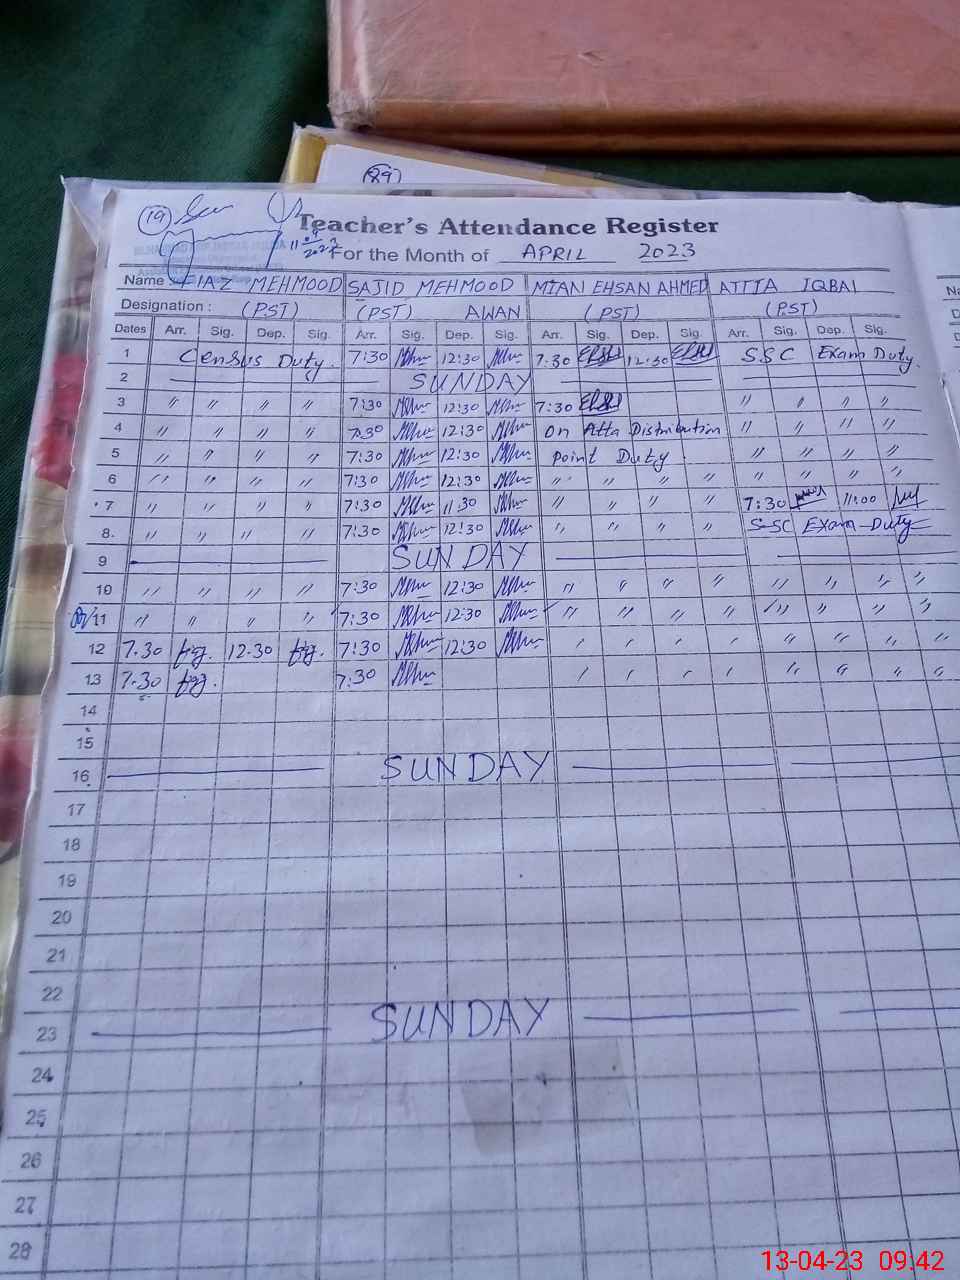 (89)
19
Teacher's Attendance Register
For the Month of APRIL 2023
Name FIAZ MEHMOOD SAJID MEHMOOD MIAN EHSAN AHMED ATTIA IQBAL
Designation : (PST) (PST) AWAN (PST) (PST)
Dates Arr. Sig. Dep. Sig. Arr. Sig. Dep. Sig. Arr. Sig. Dep. Sig. Arr. Sig. Dep. Sig.
1 Census Duty. 7:30 12:30 7:30 12:30 SSC Exam Duty.
2 SUNDAY
3 " " " " 7:30 12:30 7:30 " " " "
4 " " " " 7:30 12:30 on Atta Distribution " " " "
5 " " " " 7:30 12:30 point Duty " " " "
6 " " " " 7:30 12:30 " " " " " " " "
7 " " " " 7:30 11:30 " " " " 7:30 11:00
8. " " " " 7:30 12:30 " " " " SSC Exam Duty
9 SUNDAY
10 " " " " 7:30 12:30 " " " " " " " "
11 " " " " 7:30 12:30 " " " " " " " "
12 7.30 12.30 7:30 12:30 " " " " " " " "
13 7.30 7:30 " " " " " " " "
14
15
16 SUNDAY
17
18
19
20
21
22
23 SUNDAY
24
25
26
27
28
13-04-23 09:42